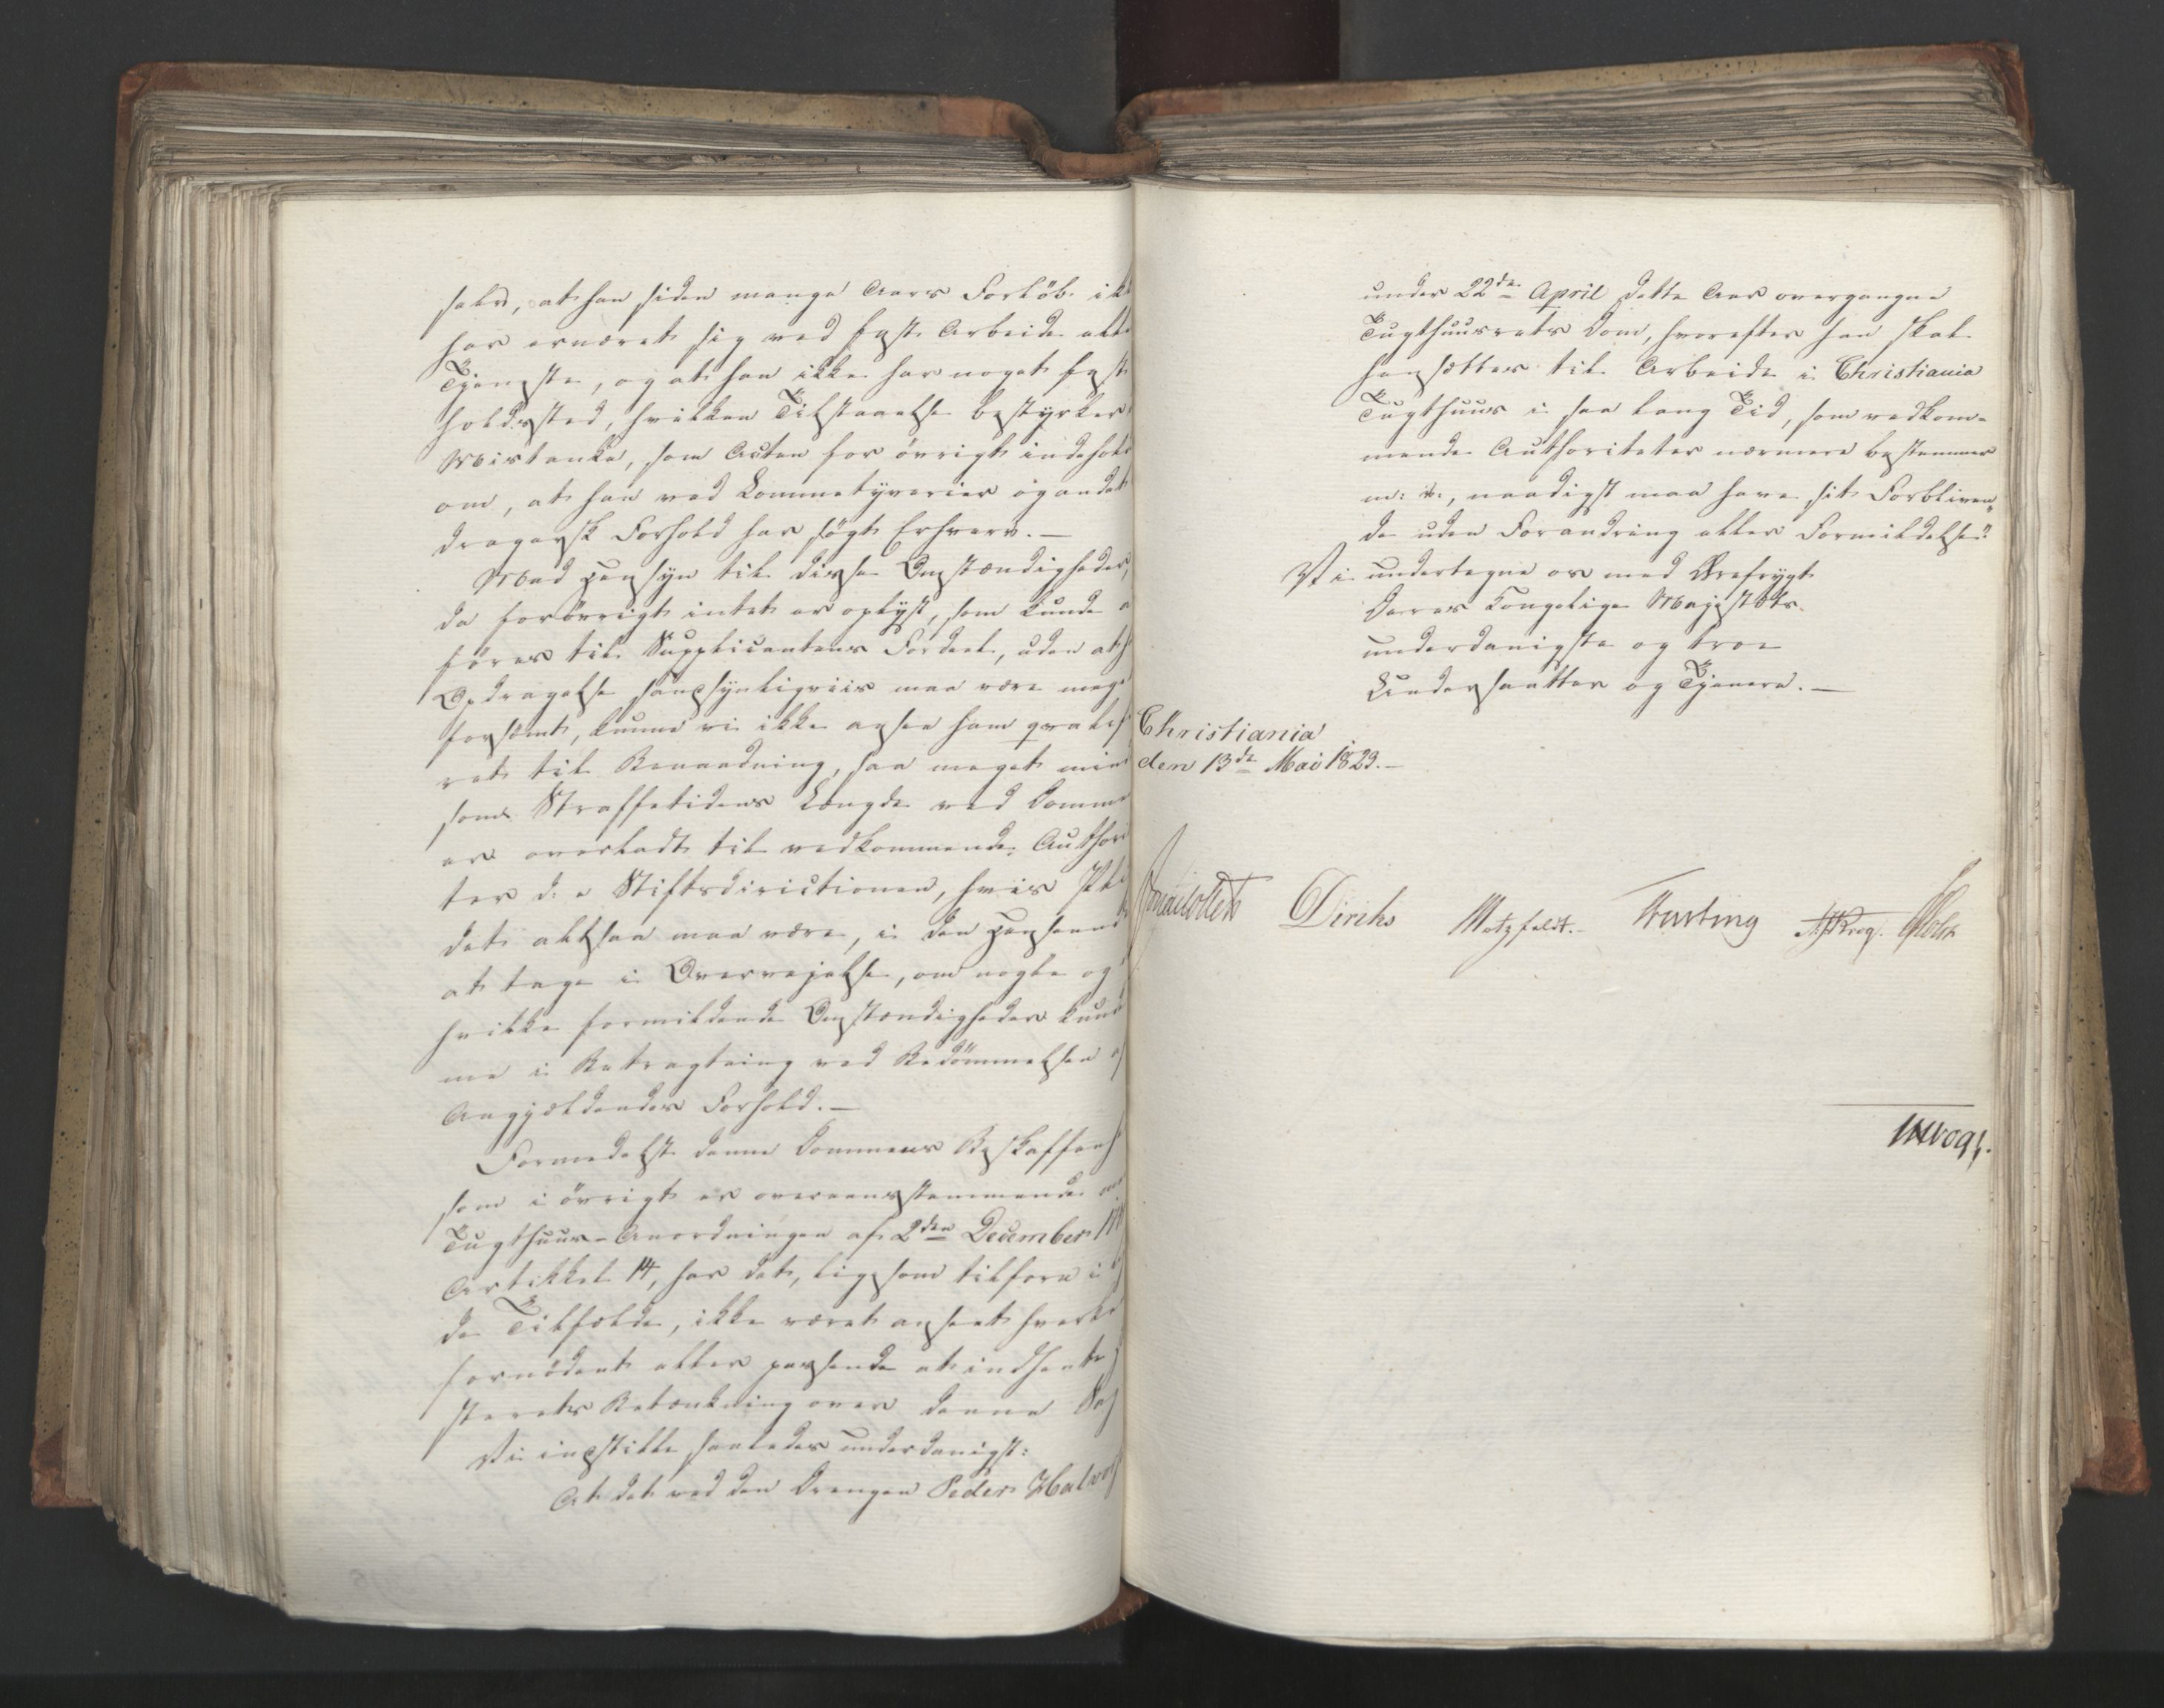 selv, at han siden mange Aars Forløb ikk
har ernæret sig ved fast Arbeide elle
Tjeneste, og at han ikke har noget fast
holdssted, hvilken Tilstaaelse bestyrker
Mistanke, som Acten for övrigt indehold
om, at han ved Lommetyverier og andet
dragersk Forhold har søgt Erhverv. —
Med Hensyn til disse Omstændigheder,
da forövrigt intet er oplyst, som kunde a
føres til Supplicantens Fordeel, uden at h
Opdragelse sandsynligviis maa være mege
forsømt, kunne vi ikke ansee ham qvalif
ret til Benaadning, saa meget mind
som Straffetidens Længde ved Domme
er overladt til vedkommende Authori
ter d: e Stiftsdirectionen, hvis Pli
det altsaa maa være, i den Henseend
at tage i Overvejelse, om nogle og
hvilke formildende Omstændigheder kund
me i Betragtning ved Bedømmelsen af
Angjældendes Forhold. —
Formedelst denne Dommens Beskaffenh
som i övrigt er overeensstemmende me
Tugthuus-Anordningen af 2den December 17
Artikkel 14, har det, ligesom tilforn i
de Tilfælde, ikke været anseet hverke
fornødent eller passende at indhente
sterets Betænkning over denne Sag
Vi indstille saaledes underdanigst:
At det ved den Drengen Peder Halvor
under 22de April dette Aar overgangne
Tugthuusrets Dom, hvorefter han skal
hensættes til Arbeide i Christiania
Tugthuus i saa lang Tid, som vedkom-
mende Authoriteter nærmere bestemmer
m: v:, naadigst maa have sit Forbliven„
de uden Forandring eller Formildelse."
Vi undertegne os med Ærefrygt
Deres Kongelige Majestæts
underdanigste og troe
Undersaatter og Tjenere. —
Christiania
den 13de Mai 1823. —
Jonas Collett Diriks Motzfeldt. Fasting Krog. Holst
Vogt.